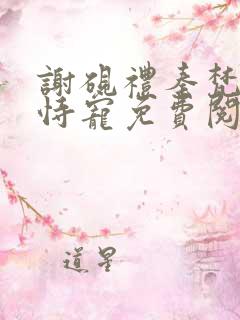 謝硯禮秦梵
恃寵免費閱
道星